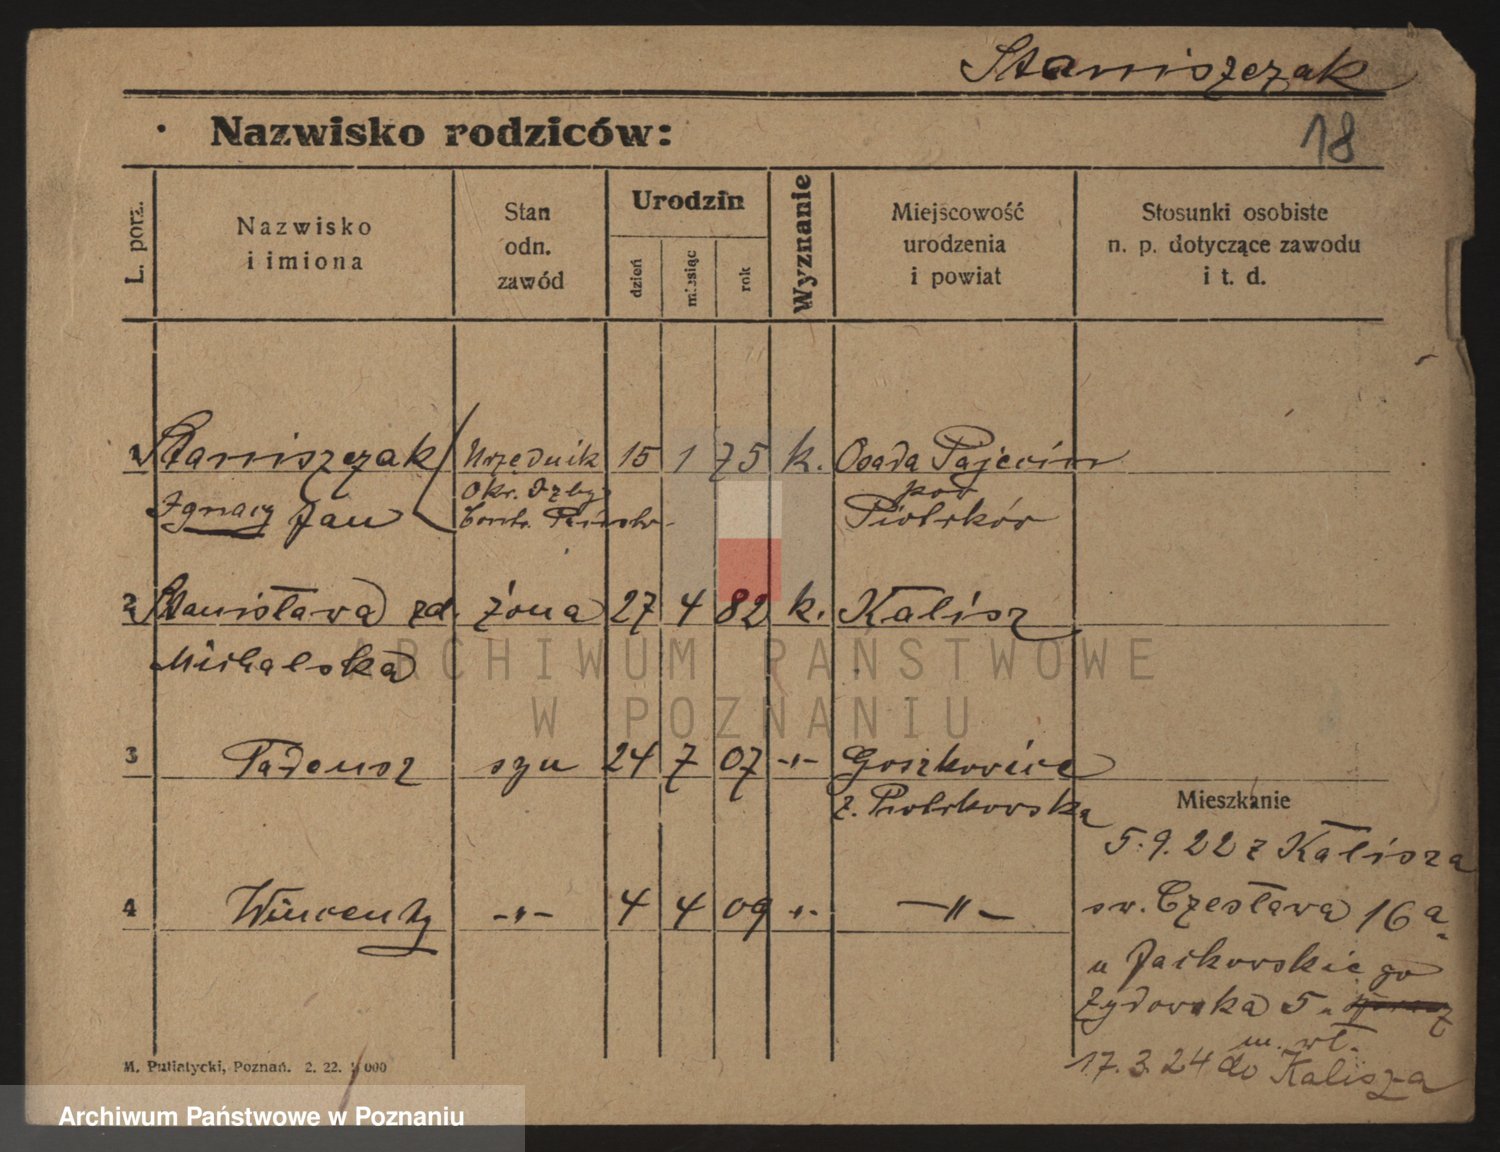 Staniszczak
Nazwisko rodziców:
18
L. porz.
Nazwisko
i imiona
Stan
odn.
zawód
Urodzin
dzień
miesiąc
rok
Wyznanie
Miejscowość
urodzenia
i powiat
Stosunki osobiste
n. p. dotyczące zawodu
i t. d.
1 Staniszczak Urzędnik 15 1 75 k. Osada Pajęczno
Ignacy Jan Okr. Izby pow
Kontr. Państw. Piotrków
2 Stanisława zd. żona 27 4 82 k. Kalisz
Michalska
3 Tadeusz syn 24 7 07 -"- Goszkowice
z. Piotrkowska
Mieszkanie
5.9.22 z Kalisza
4 Wincenty -"- 4 4 09 -"- -"-
św. Czesława 16a
u Jackowskiego
Żydowska 5
m. wł.
17.3.24 do Kalisza
M. Putiatycki, Poznań. 2. 22. 1 000
ARCHIWUM PAŃSTWOWE
W POZNANIU
Archiwum Państwowe w Poznaniu